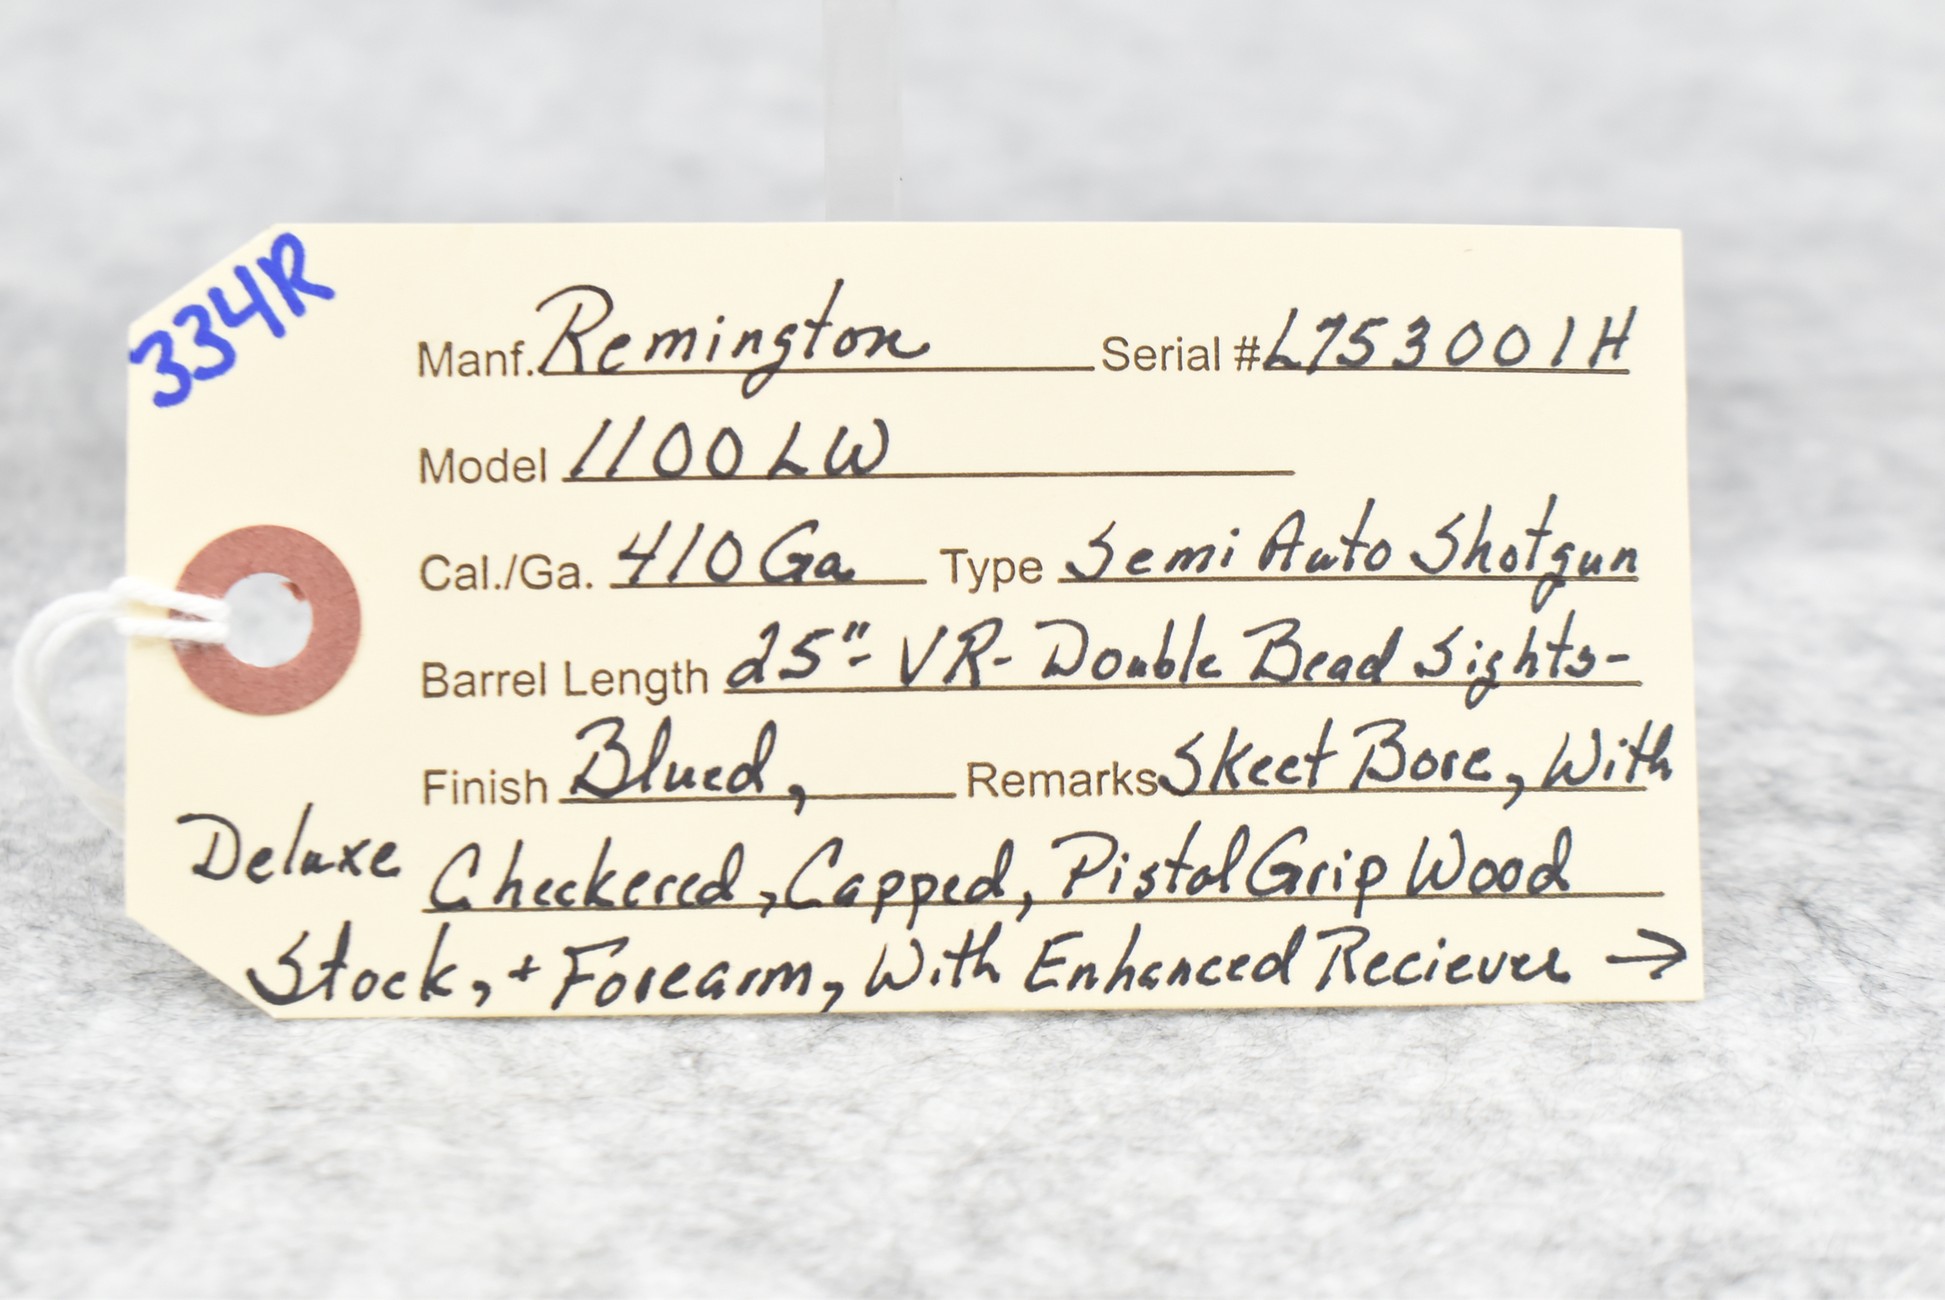 334R
Manf. Remington Serial # L753001H
Model 1100 LW
Cal./Ga. 410 Ga Type Semi Auto Shotgun
Barrel Length 25"- VR- Double Bead Sights-
Finish Blued, Remarks Skeet Bore, With
Deluxe Checkered, Capped, Pistol Grip Wood
Stock, + Forearm, With Enhanced Reciever →